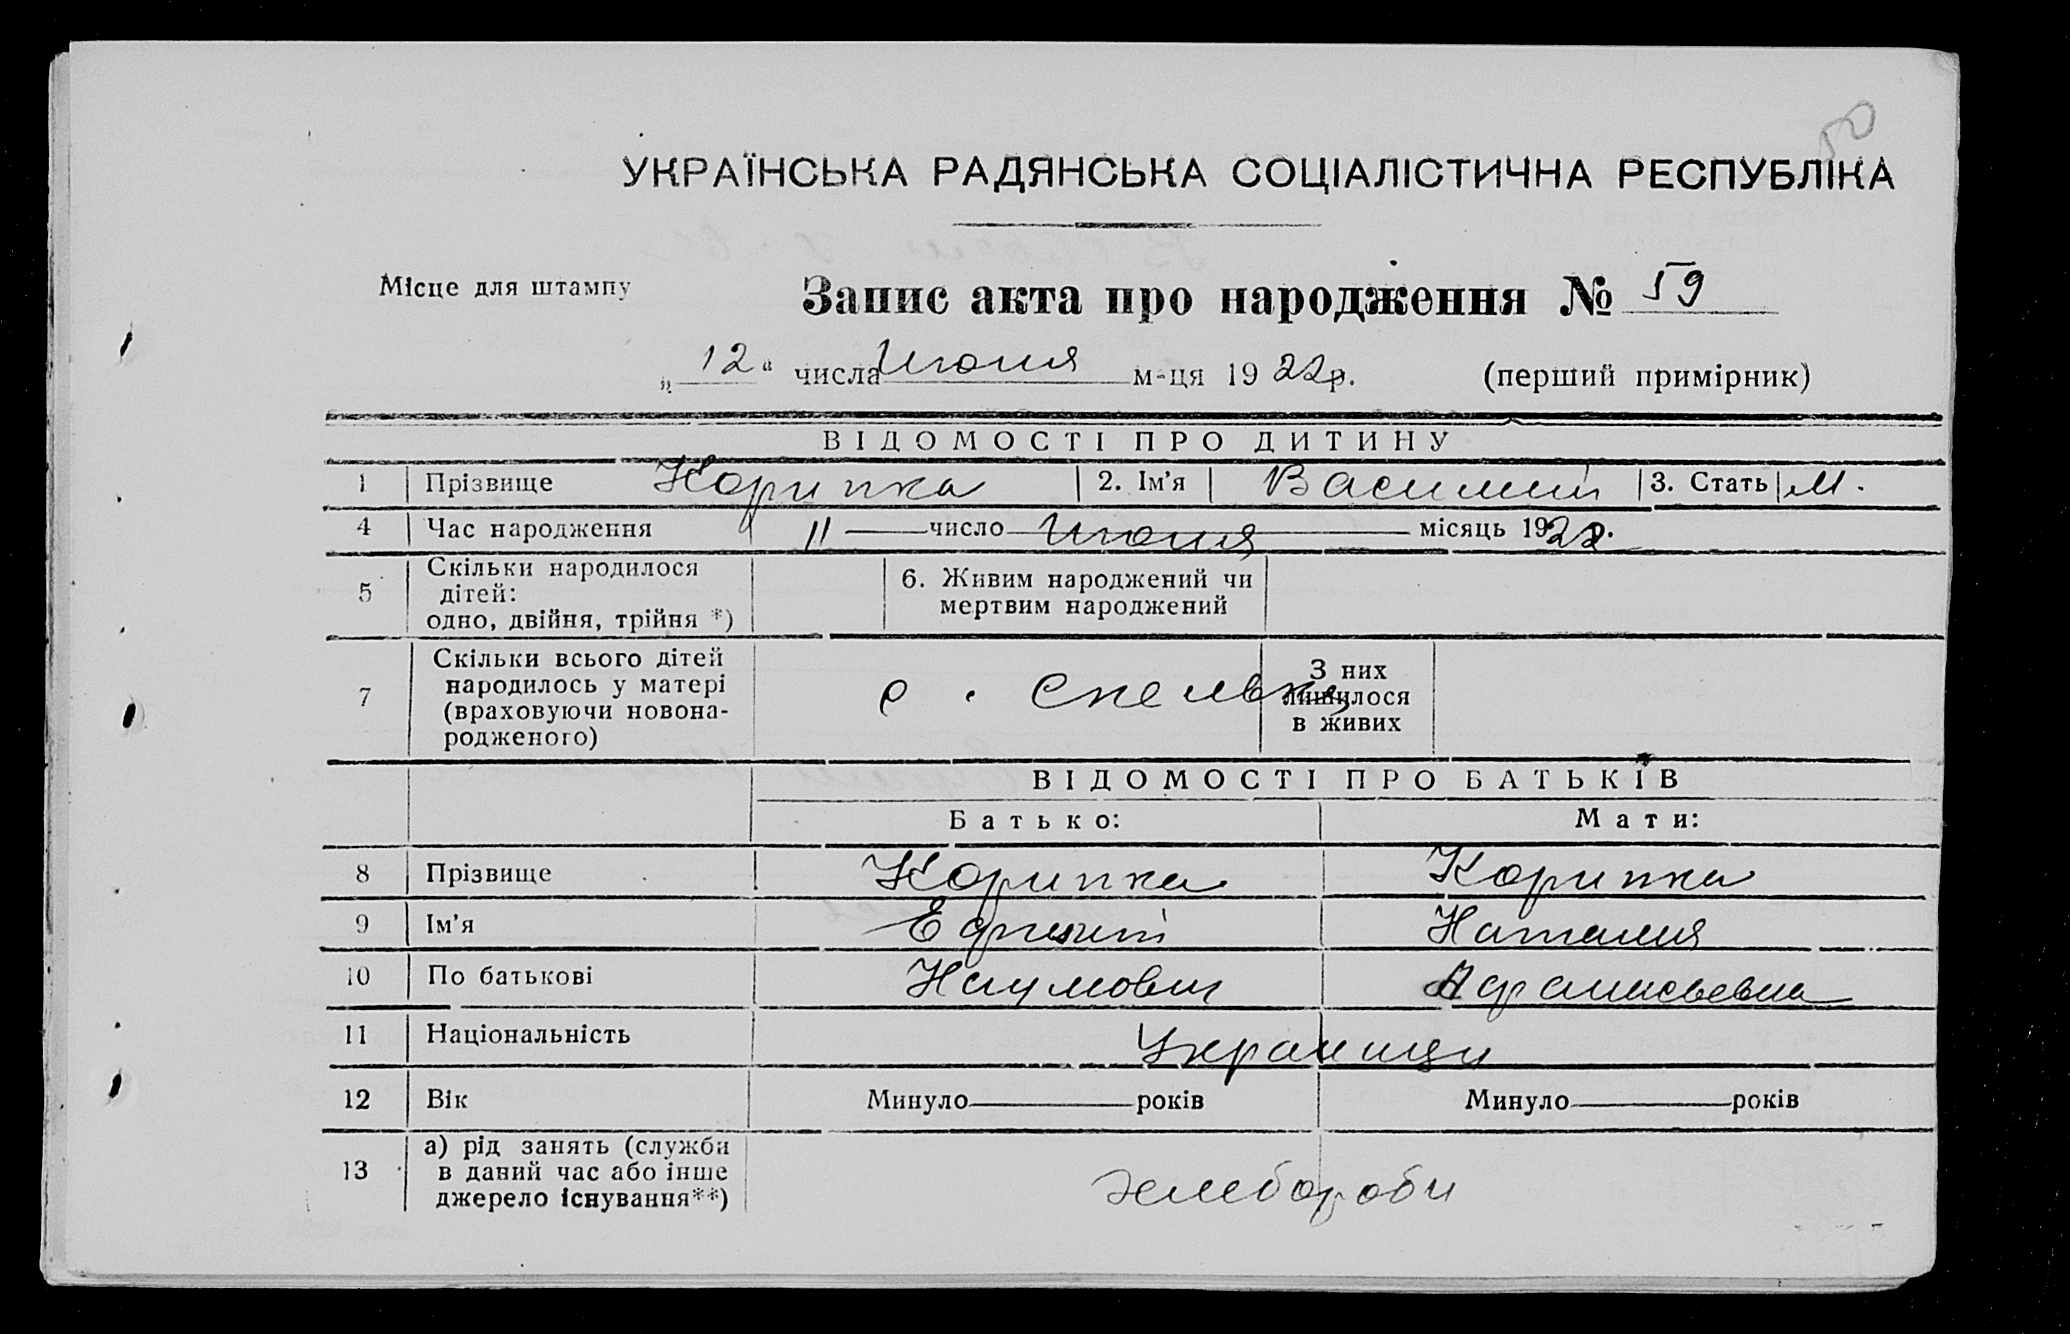 50
УКРАЇНСЬКА РАДЯНСЬКА СОЦІАЛІСТИЧНА РЕСПУБЛІКА
Місце для штампу
Запис акта про народження № 59
„12“ числа Июня м-ця 1922р. (перший примірник)
ВІДОМОСТІ ПРО ДИТИНУ
1 Прізвище Корипка 2. Ім’я Василий 3. Стать М.
4 Час народження 11 число Июня місяць 1922.
5 Скільки народилося дітей: одно, двійня, трійня *) 6. Живим народжений чи мертвим народжений
7 Скільки всього дітей народилось у матері (враховуючи новонародженого) с. Спельки З них лишилося в живих
ВІДОМОСТІ ПРО БАТЬКІВ
Батько: Мати:
8 Прізвище Корипка Корипка
9 Ім’я Ефимий Наталия
10 По батькові Наумович Афанасьевна
11 Національність Украинцы
12 Вік Минуло років Минуло років
13 а) рід занять (служби в даний час або інше джерело існування**) Землеробы